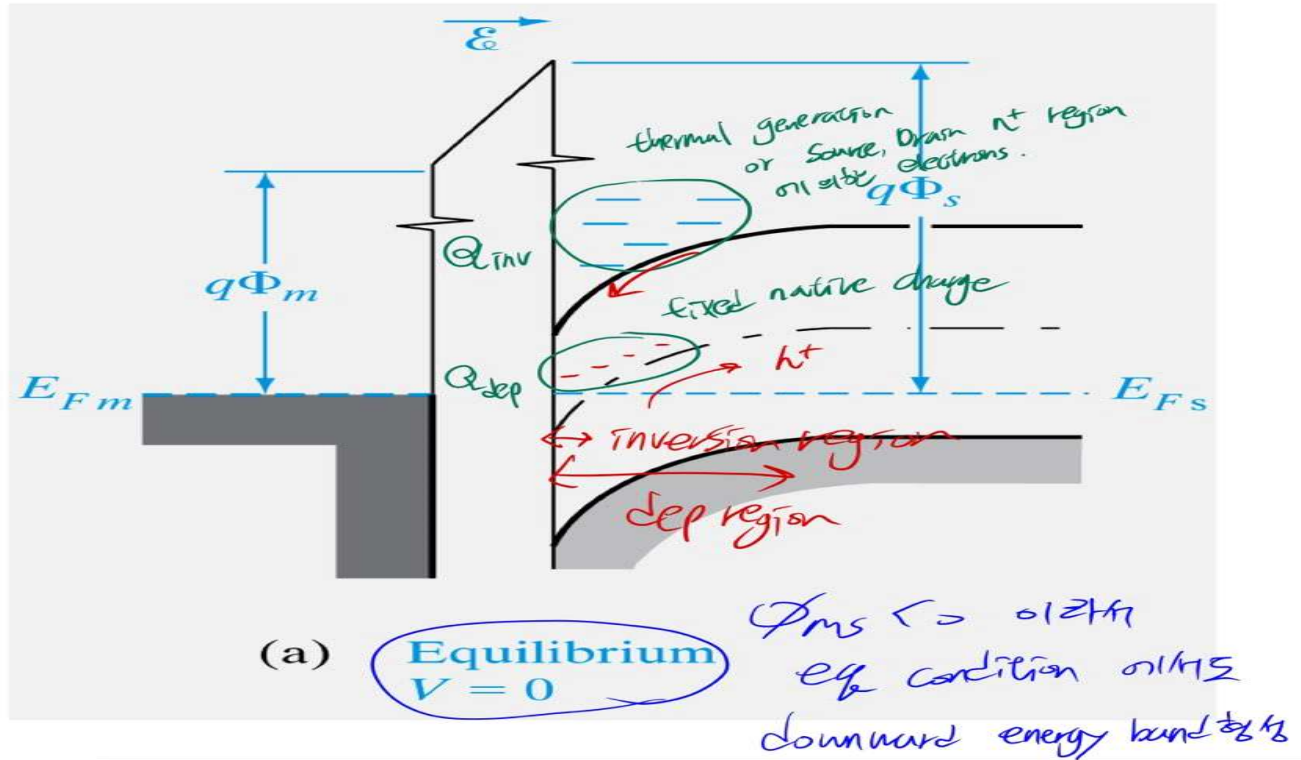 ℰ
thermal generation
or Source, Drain n+ region
에 의한 electrons.
qΦs
Qinv
qΦm
fixed native charge
h+
Qdep
EFm
EFs
inversion region
dep region
(a) Equilibrium
V = 0
Φms < 0 이라서
eq condition 에서도
downward energy band 형성